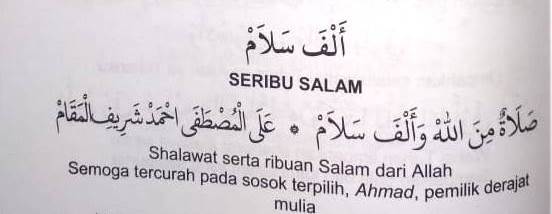 أَلْفَ سَلَامْ
SERIBU SALAM
صَلَاةٌ مِنَ اللهْ وَأَلْفَ سَلَامْ * عَلَى الْمُصْطَفَى احْمَدْ شَرِيفِ الْمَقَامْ
Shalawat serta ribuan Salam dari Allah
Semoga tercurah pada sosok terpilih, Ahmad, pemilik derajat
mulia